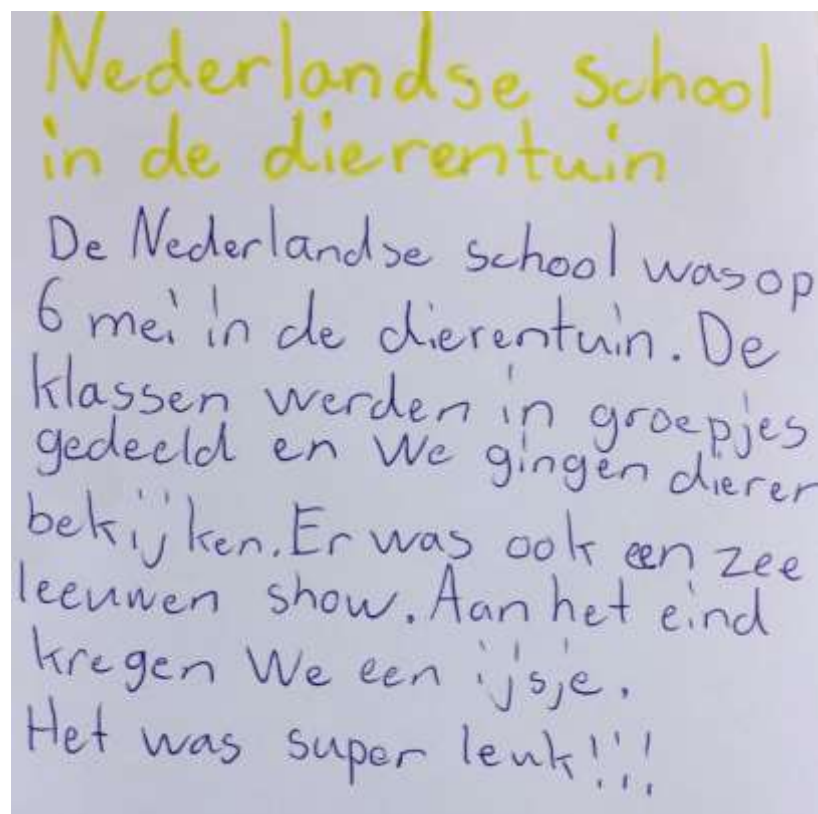 Nederlandse School
in de dierentuin
De Nederlandse school was op
6 mei in de dierentuin. De
klassen werden in groepjes
gedeeld en We gingen dieren
bekijken. Er was ook een zee
leeuwen show. Aan het eind
kregen We een ijsje.
Het was super leuk!!!